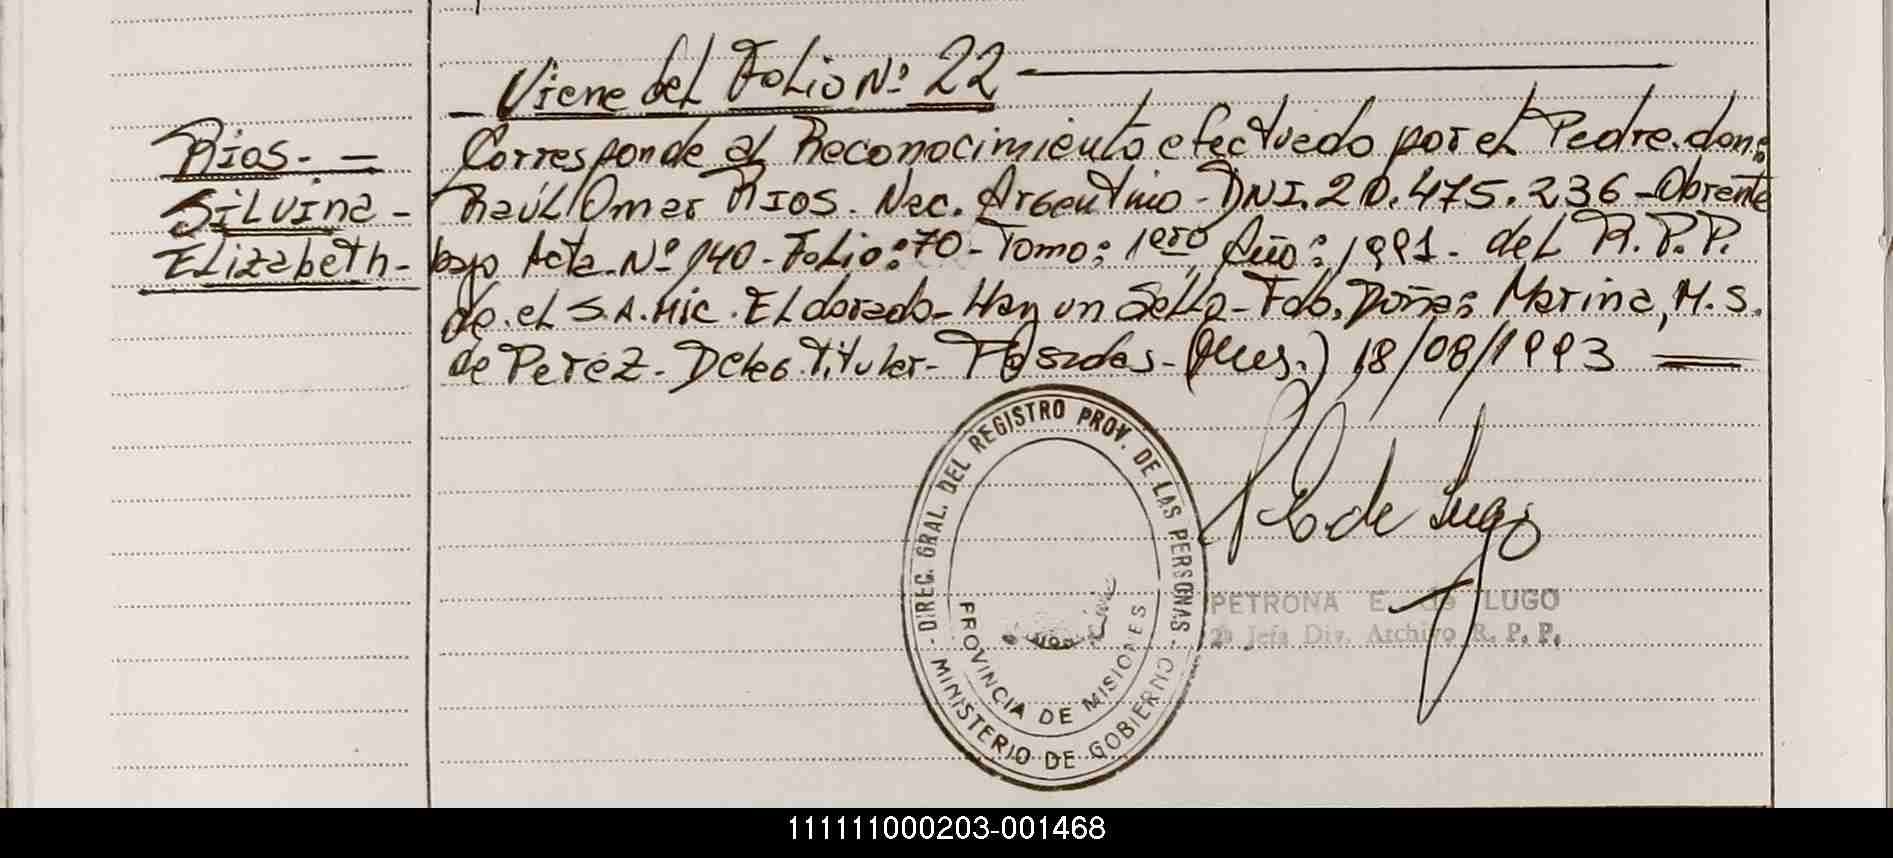 Viene del Folio Nº 22
Rios.
Silvina
Elizabeth
Corresponde al Reconocimiento efectuado por el Padre. don:
Raúl Omar RIOS. Nac. Argentino - DNI. 20.475.236 - Obrante
bajo Acta Nº 140 - Folio: 70 - Tomo: 1ero Año: 1991 - del R.P.P.
de el S.A.Mic. Eldorado - Hay un Sello - Fdo. Doña: Marina, M. S.
de Perez - Dcleg. Titular - Posadas - (Mnes.) 18/08/1993
DIREC. GRAL. DEL REGISTRO PROV. DE LAS PERSONAS
MINISTERIO DE GOBIERNO
PROVINCIA DE MISIONES
de Lugo
PETRONA E. de LUGO
2º Jefa Div. Archivo R. P. P.
111111000203-001468